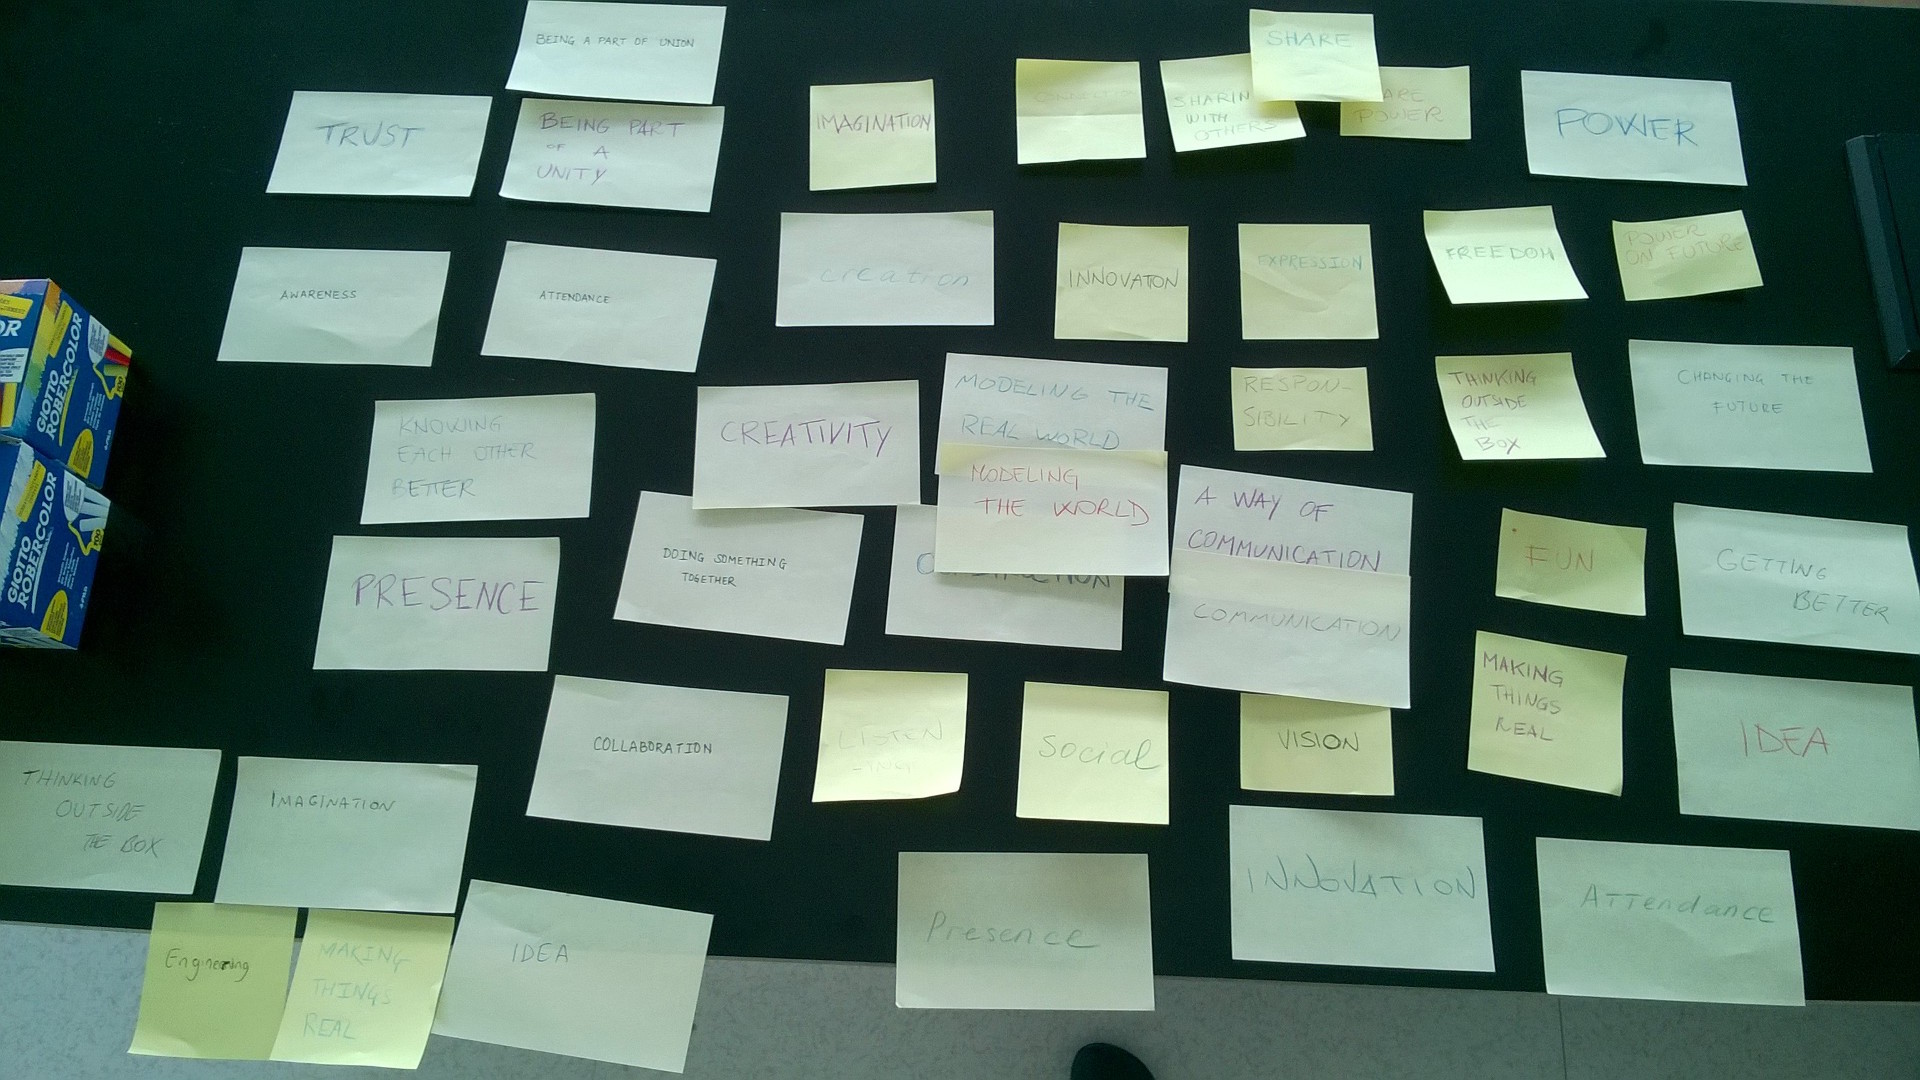 BEING A PART OF UNION
SHARE
TRUST
BEING PART
OF A
UNITY
IMAGINATION
SHARIN
WITH
OTHERS
ARE
POWER
POWER
AWARENESS
ATTENDANCE
creation
INNOVATON
EXPRESSION
FREEDOM
POWER
ON FUTURE
KNOWING
EACH OTHER
BETTER
CREATIVITY
MODELING THE
REAL WORLD
MODELING
THE WORLD
RESPON-
SIBILITY
THINKING
OUTSIDE
THE
BOX
CHANGING THE
FUTURE
PRESENCE
DOING SOMETHING
TOGETHER
A WAY OF
COMMUNICATION
COMMUNICATION
FUN
GETTING
BETTER
COLLABORATION
LISTEN
-ING
Social
VISION
MAKING
THINGS
REAL
IDEA
THINKING
OUTSIDE
THE BOX
IMAGINATION
Engineering
MAKING
THINGS
REAL
IDEA
Presence
INNOVATION
ATTendance
GIOTTO
ROBERCOLOR
GIOTTO
ROBERCOLOR